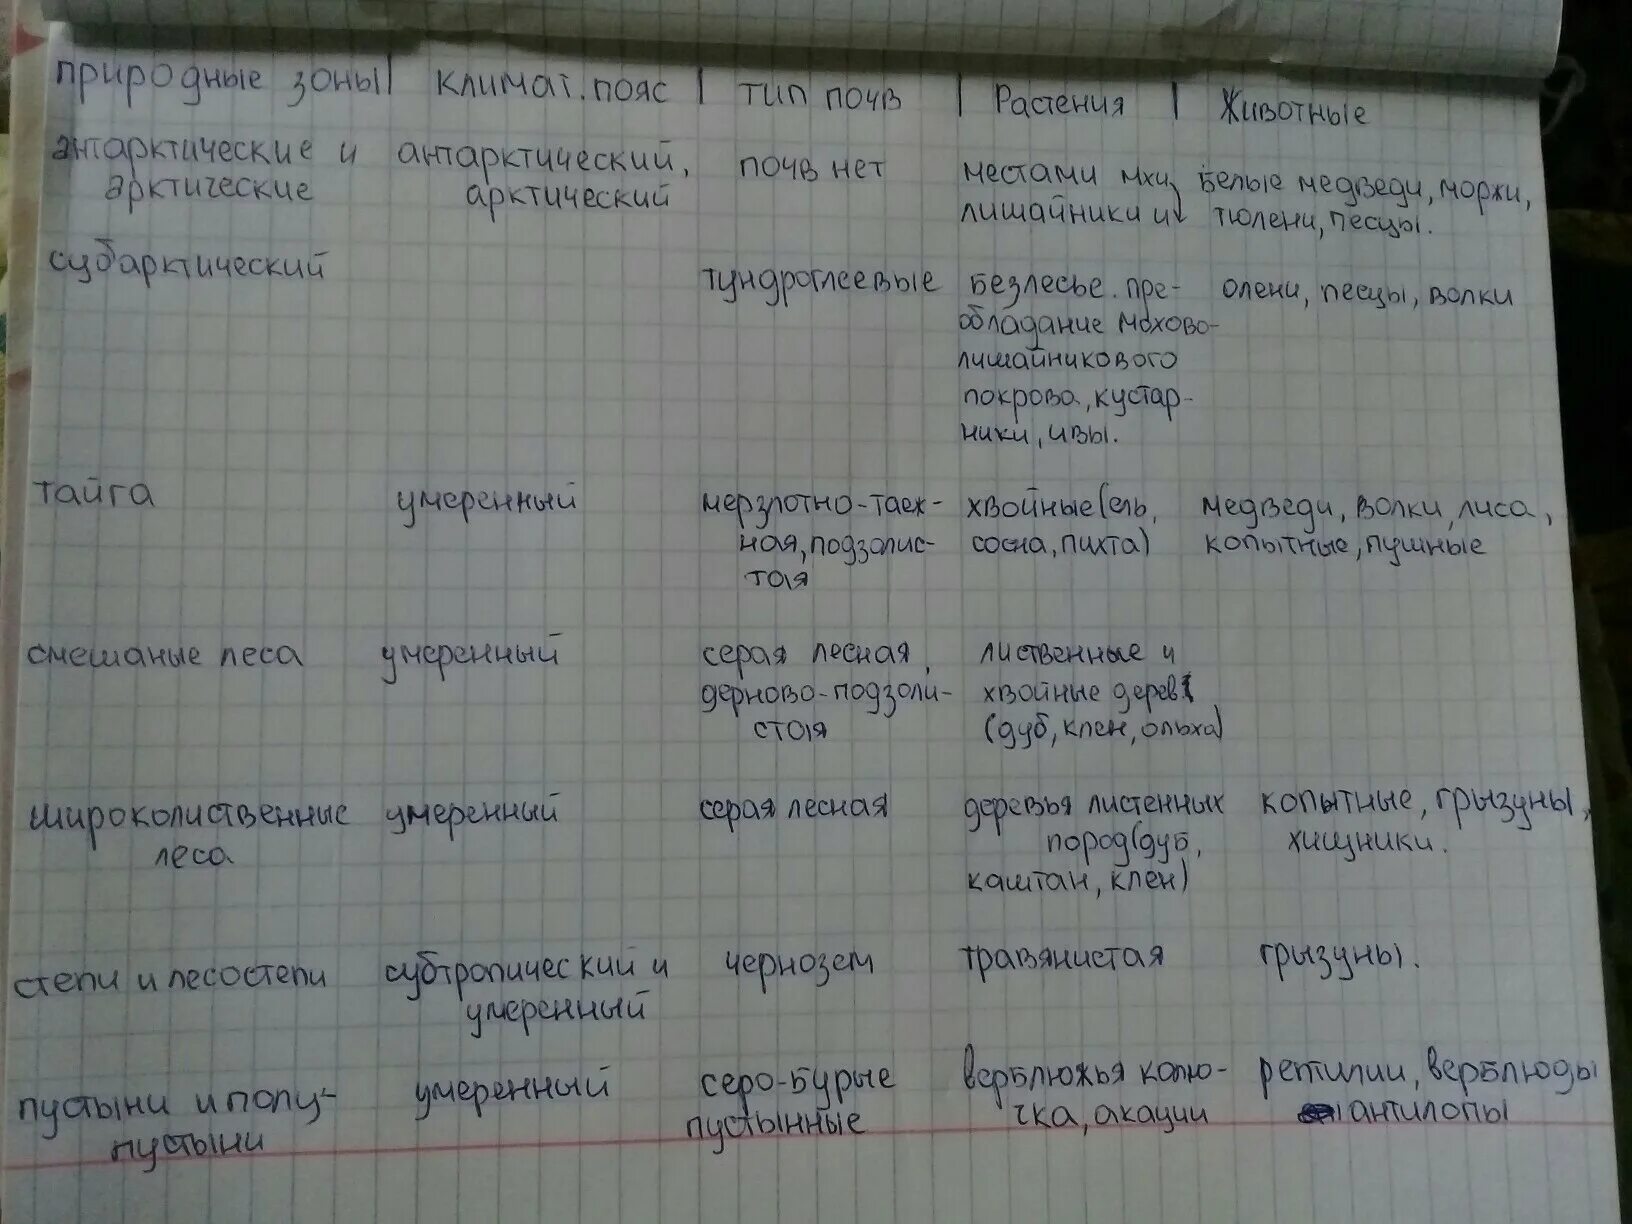 природные зоны | климат. пояс | тип почв | Растения | Животные
антарктические и антарктический, почв нет местами мхи, белые медведи, моржи,
арктические арктический лишайники и тюлени, песцы.
субарктический тундроглеевые безлесье. пре- олени, песцы, волки
обладание мохово-
лишайникового
покрова, кустар-
ники, ивы.
тайга умеренный мерзлотно-таеж- хвойные (ель, медведи, волки, лиса,
ная, подзолис- сосна, пихта) копытные, пушные
тая
смешаные леса умеренный серая лесная, лиственные и
дерново-подзоли- хвойные дерев
стая (дуб, клен, ольха)
широколиственные умеренный серая лесная деревья листенных копытные, грызуны,
леса пород (дуб, хищники.
каштан, клен)
степи и лесостепи субтропический и чернозем травянистая грызуны.
умеренный
пустыни и полу- умеренный серо-бурые верблюжья колю- рептилии, верблюды
пустыни пустынные чка, акации антилопы